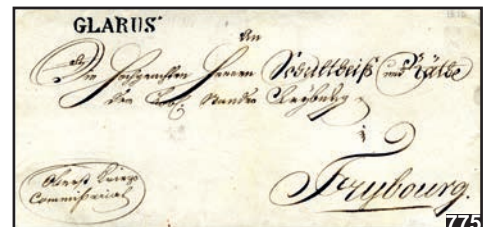 GLARUS
An
die Hochgeachten Herren Schultheiß und Räthe
des Standes Freyburg
Frybourg.
Oberst Kriegs
Commissariat
775